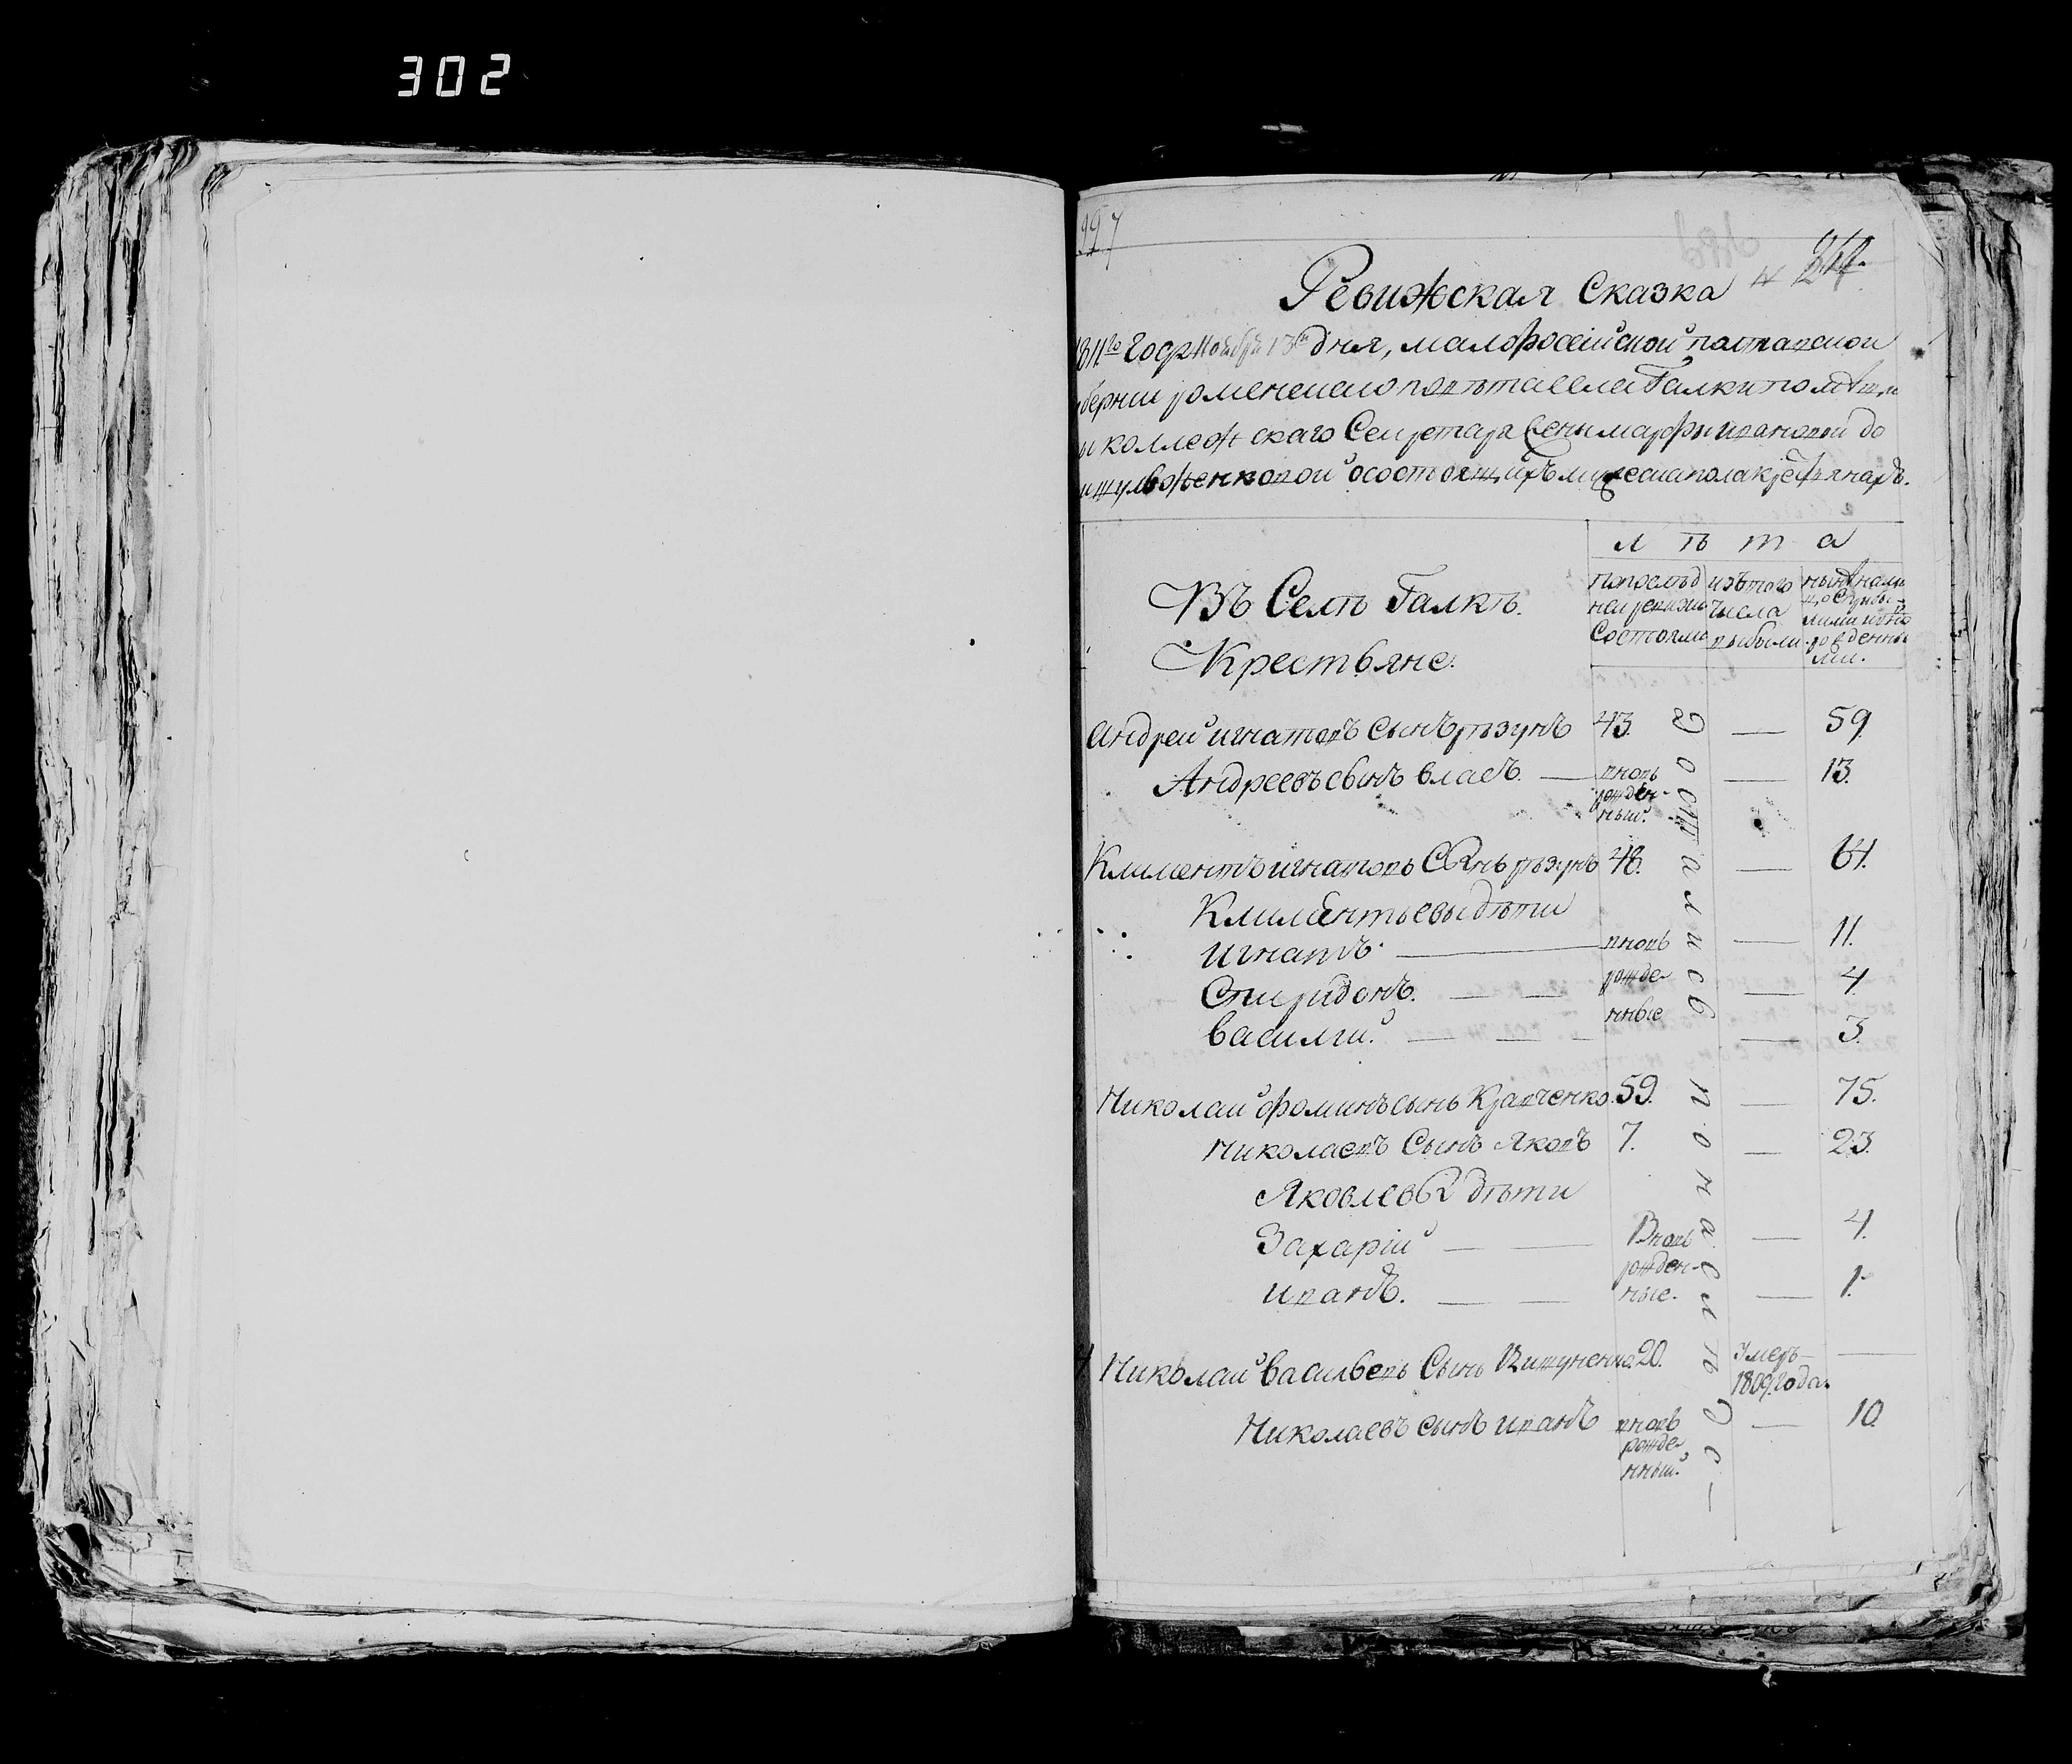 302
997
Ревижская Сказка № 
1811го года Ноября 13го дня, малороссійской полтавской
губерніи роменского повѣта села Галки помѣщи
и коллежского Секретаря жены марфы ивановой
о состоящихъ мужеска пола крестьянахъ.
лѣта
Въ Селѣ Галкѣ.
Крестьяне.
по послѣд
ней ревизіи
Состояли
изъ того
числа
выбыли
нынѣ на ли
цо с прибы-
лыми и вно
рожденны
ми.
Андрей игнатовъ сынъ рѣзунъ 43. — 59
Андреевъ сынъ власъ. — вновь рожден-ный. — 13.
Климентъ игнатовъ Сынъ рѣзунъ 48. — 64.
Климентьевы дѣти
игнатъ — вновь — 11.
Спиридонъ. — рожде — 4
василий. — нные — 3.
Николай фоминъ сынъ Кравченко 59. — 75.
Николаевъ Сынъ Яковъ 7. — 23.
Яковлевы дѣти
Захарій — Вновь рожден- — 4.
иванъ. — ные. — 1.
Николай васильевъ Сынъ 20. умеръ 1809 года. —
Николаевъ сынъ иванъ вновь рожде нный. — 10.
достались по наслѣдс-